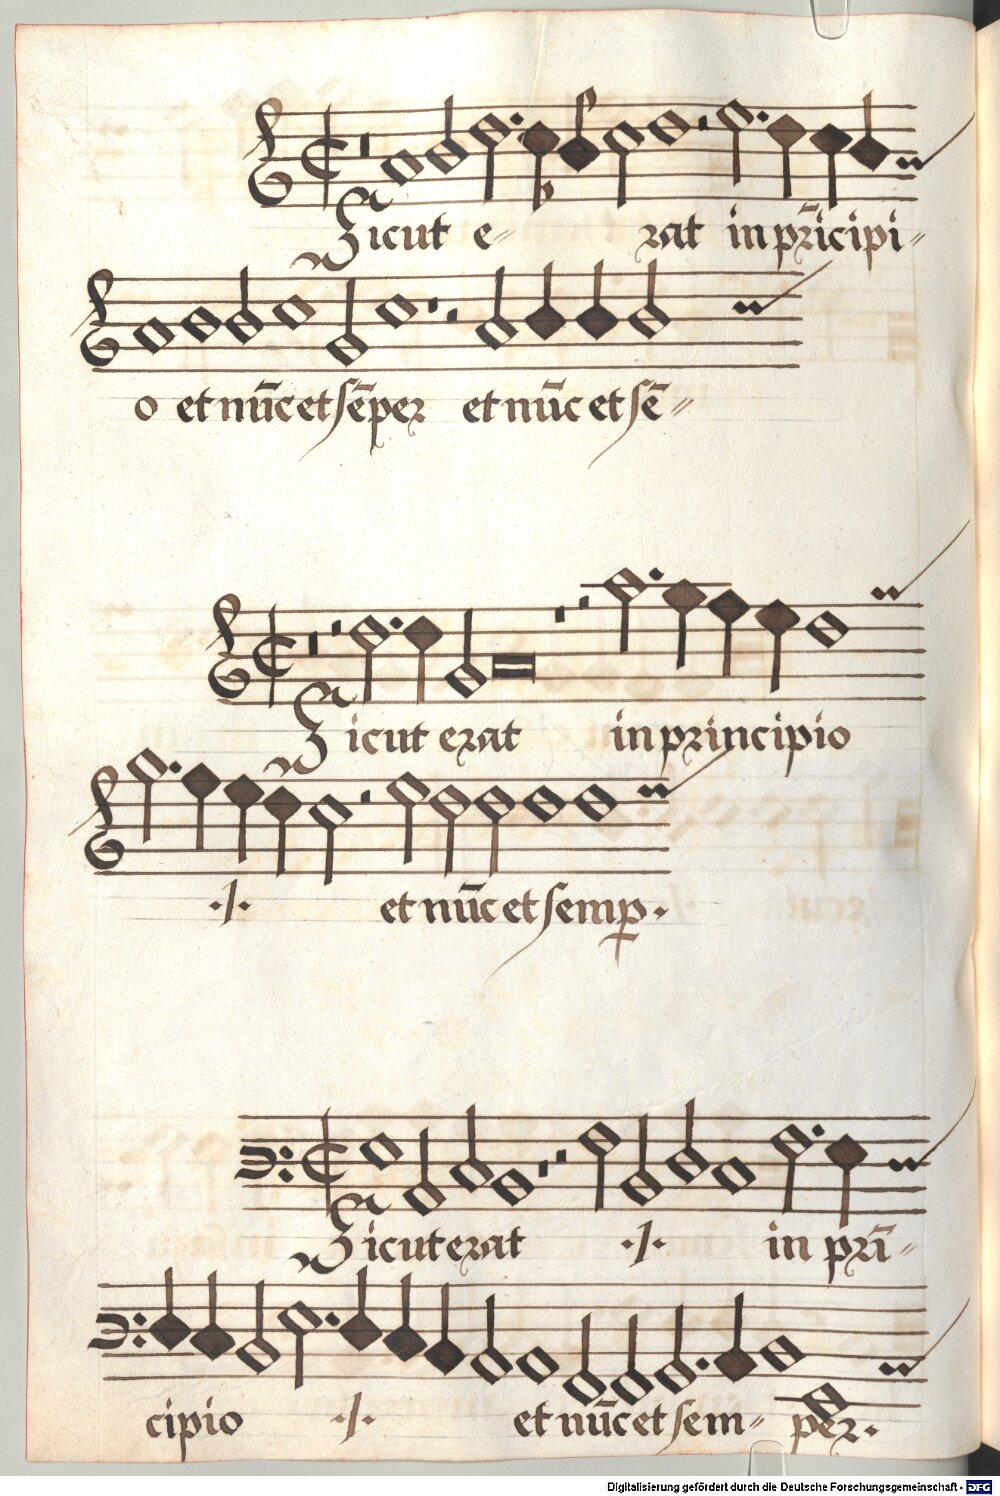 Sicut e- rat in prīcipi-
o et nūc et sēper et nūc et sē-
Sicut erat in principio
./. et nūc et semp.
Sicut erat ./. in prī-
cipio ./. et nūc et sem- per.
Digitalisierung gefördert durch die Deutsche Forschungsgemeinschaft - DFG